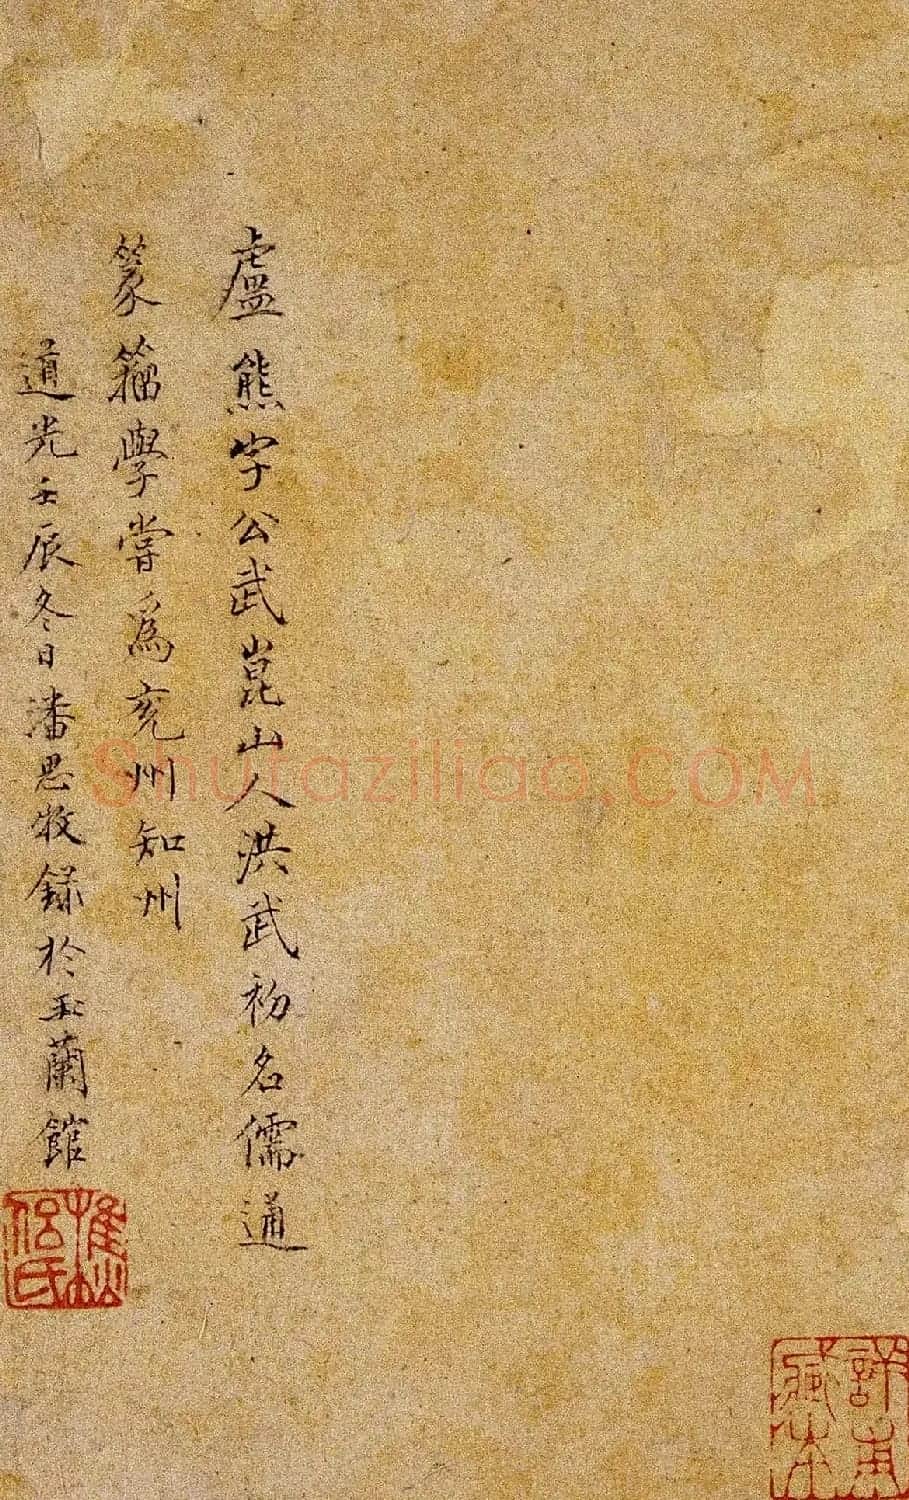 盧熊字公武崑山人洪武初名儒通
篆籀學嘗爲兖州知州
道光壬辰冬日潘思牧録於玉蘭館
Shufaziliao.COM